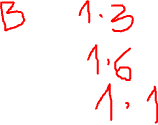 B 1.3
1.6
1.1